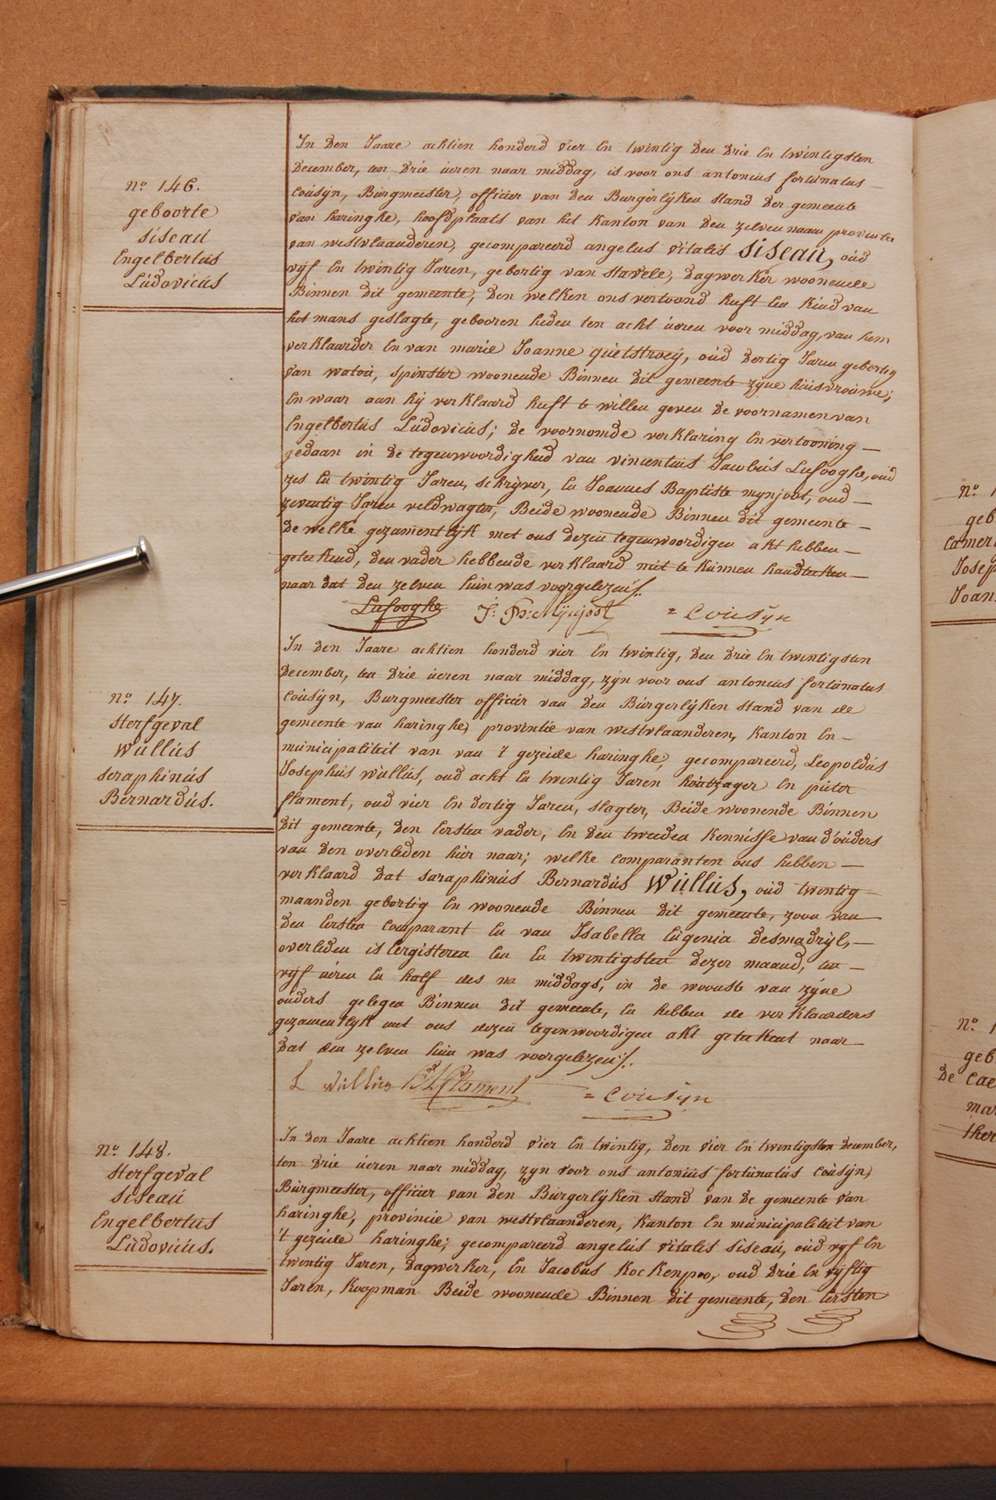 No. 146.
geboorte
siseau
Engelbertus
Ludovicus
In den Jaare achtien honderd vier En twintig den drie En twintigsten
december, ten drie ueren naar middag, is voor ons antonius fortunatus
Cousyn, Burgmeester, officier van den Burgerlyken stand der gemeente
van haringhe, hoofdplaats van het kanton van den zelven naam provintie
van westvlaanderen, gecompareerd angelus vitalis siseau, oud
vyf En twintig Jaren, geboortig van stavele, dagwerker woonende
Binnen dit gemeente, den welken ons vertoond heeft een kind van
het mans geslagte, gebooren heden ten acht ueren voor middag, van hem
verklaarder En van marie Joanne quetstroey, oud dertig Jaren gebortig
van watou, spinster woonende Binnen dit gemeente zyne huisvrouwe;
En waar aan hy verklaard heeft te willen geven de voornamen van
Engelbertus Ludovicus; de voornomde verklaring En vertooning
gedaan in de tegenwoordigheid van vincentius Jacobus Lafooghe, oud
zes En twintig Jaren, schryver, En Joannes Baptiste mynjoot, oud
zeventig Jaren veldwagter, Beide woonende Binnen dit gemeente
de welke gezamentlyk met ons dezen tegenwoordigen akt hebben
geteekend, den vader hebbende verklaard niet te kunnen handteeken
naar dat den zelven hun was voorgelezen/.
Lafooghe J: Bte Mynjoot = Cousyn
No. 147.
sterfgeval
Wullus
seraphinus
Bernardus.
In den Jaare achtien honderd vier En twintig, den drie En twintigsten
december, ten drie ueren naar middag, zyn voor ons antonius fortunatus
Cousyn, Burgmeester officier van den Burgerlyken stand van de
gemeente van haringhe, provintie van westvlaanderen, Kanton En
municipaliteit van van 't gezeide haringhe, gecompareerd, Leopoldus
Josephus Wullus, oud acht En twintig Jaren houtzager En pieter
flament, oud vier En dertig Jaren, slagter, Beide woonende Binnen
dit gemeente, den Eersten vader, En den tweeden Kennisse van d'ouders
van den overleden hier naar; welke comparanten ons hebben
verklaard dat seraphinus Bernardus Wullus, oud twintig
maanden gebortig En woonende Binnen dit gemeente, zoon van
den Eersten comparant En van Isabella Eugenia desmadryl,
overleden is Eergisteren Een En twintigsten dezer maand, ten
vyf ueren En half des na middags, in de wooнste van zyne
ouders gelegen Binnen dit gemeente, En hebben de verklaarders
gezamentlyk met ons dezen tegenwoordigen akt geteekent naar
dat den zelven hun was voorgelezen/.
L Wullus P flament = Cousyn
No. 148.
sterfgeval
siseau
Engelbertus
Ludovicus.
In den Jaare achtien honderd vier En twintig, den vier En twintigsten december,
ten drie ueren naar middag, zyn voor ons antonius fortunatus cousyn,
Burgmeester, officier van den Burgerlyken stand van de gemeente van
haringhe, provincie van westvlaanderen, Kanton En municipaliteit van
't gezeide haringhe; gecompareerd angelus vitalis siseau, oud vyf En
twintig Jaren, dagwerker, En Jacobus Kockenpoo, oud drie En vyftig
Jaren, Koopman Beide woonende Binnen dit gemeente, den Eersten